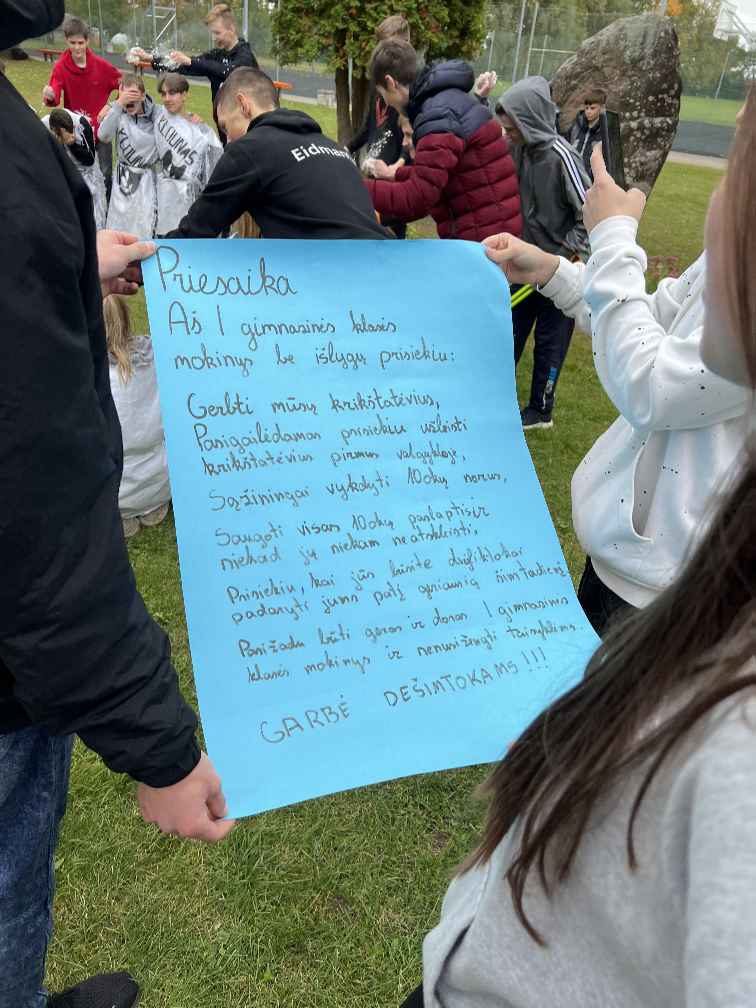 KLOUNAS
KLOUNAS
Eidman
Priesaika
Aš I gimnasinės klasės
mokinys be išlygų prisiekiu:
Gerbti mūsų krikštatėvius,
Pasigailėdamas prisiekiu užleisti
krikštatėvius pirmus valgykloje,
Sąžiningai vykdyti 10okų norus,
Saugoti visas 10okų paslaptis ir
niekad jų niekam neatskleisti,
Prisiekiu, kai jūs būsite dvyliktokai
padaryti jums patį geriausią šimtadienį
Pasižadu būti geras ir doras I gimnasinės
klasės mokinys ir nenusižengti taisyklėms.
GARBĖ DEŠIMTOKAMS!!!